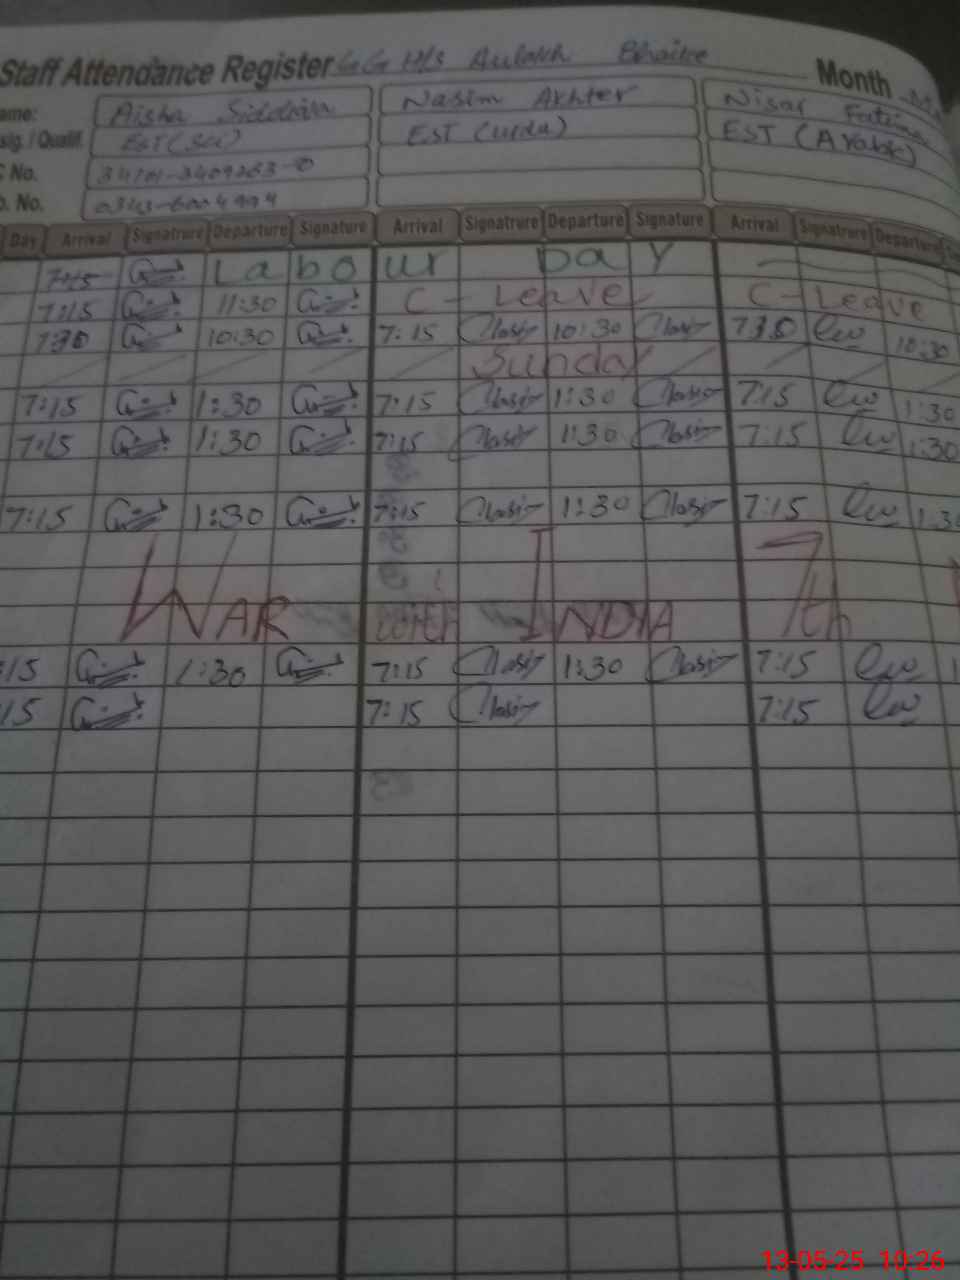 Staff Attendance Register GG H/S Aulakh Bhaike Month
ame: Aisha Siddiqa Nasim Akhter Nisar Fatima
sig. / Qualif. EST (Sci) EST (Urdu) EST (Arabic)
C No. 34101-3409263-0
b. No. 0343-6004994
Day Arrival Signatrure Departure Signature Arrival Signatrure Departure Signature Arrival Signatrure Departure
7:15 Labour Day
7:15 11:30 C-Leave C-Leave
7:30 10:30 7:15 10:30 7:30 10:30
Sunday
7:15 1:30 7:15 1:30 7:15 1:30
7:15 1:30 7:15 1:30 7:15 1:30
7:15 1:30 7:15 1:30 7:15 1:3
WAR INDIA 7th
:15 1:30 7:15 1:30 7:15
15 7:15 7:15
13-05-25 10:26